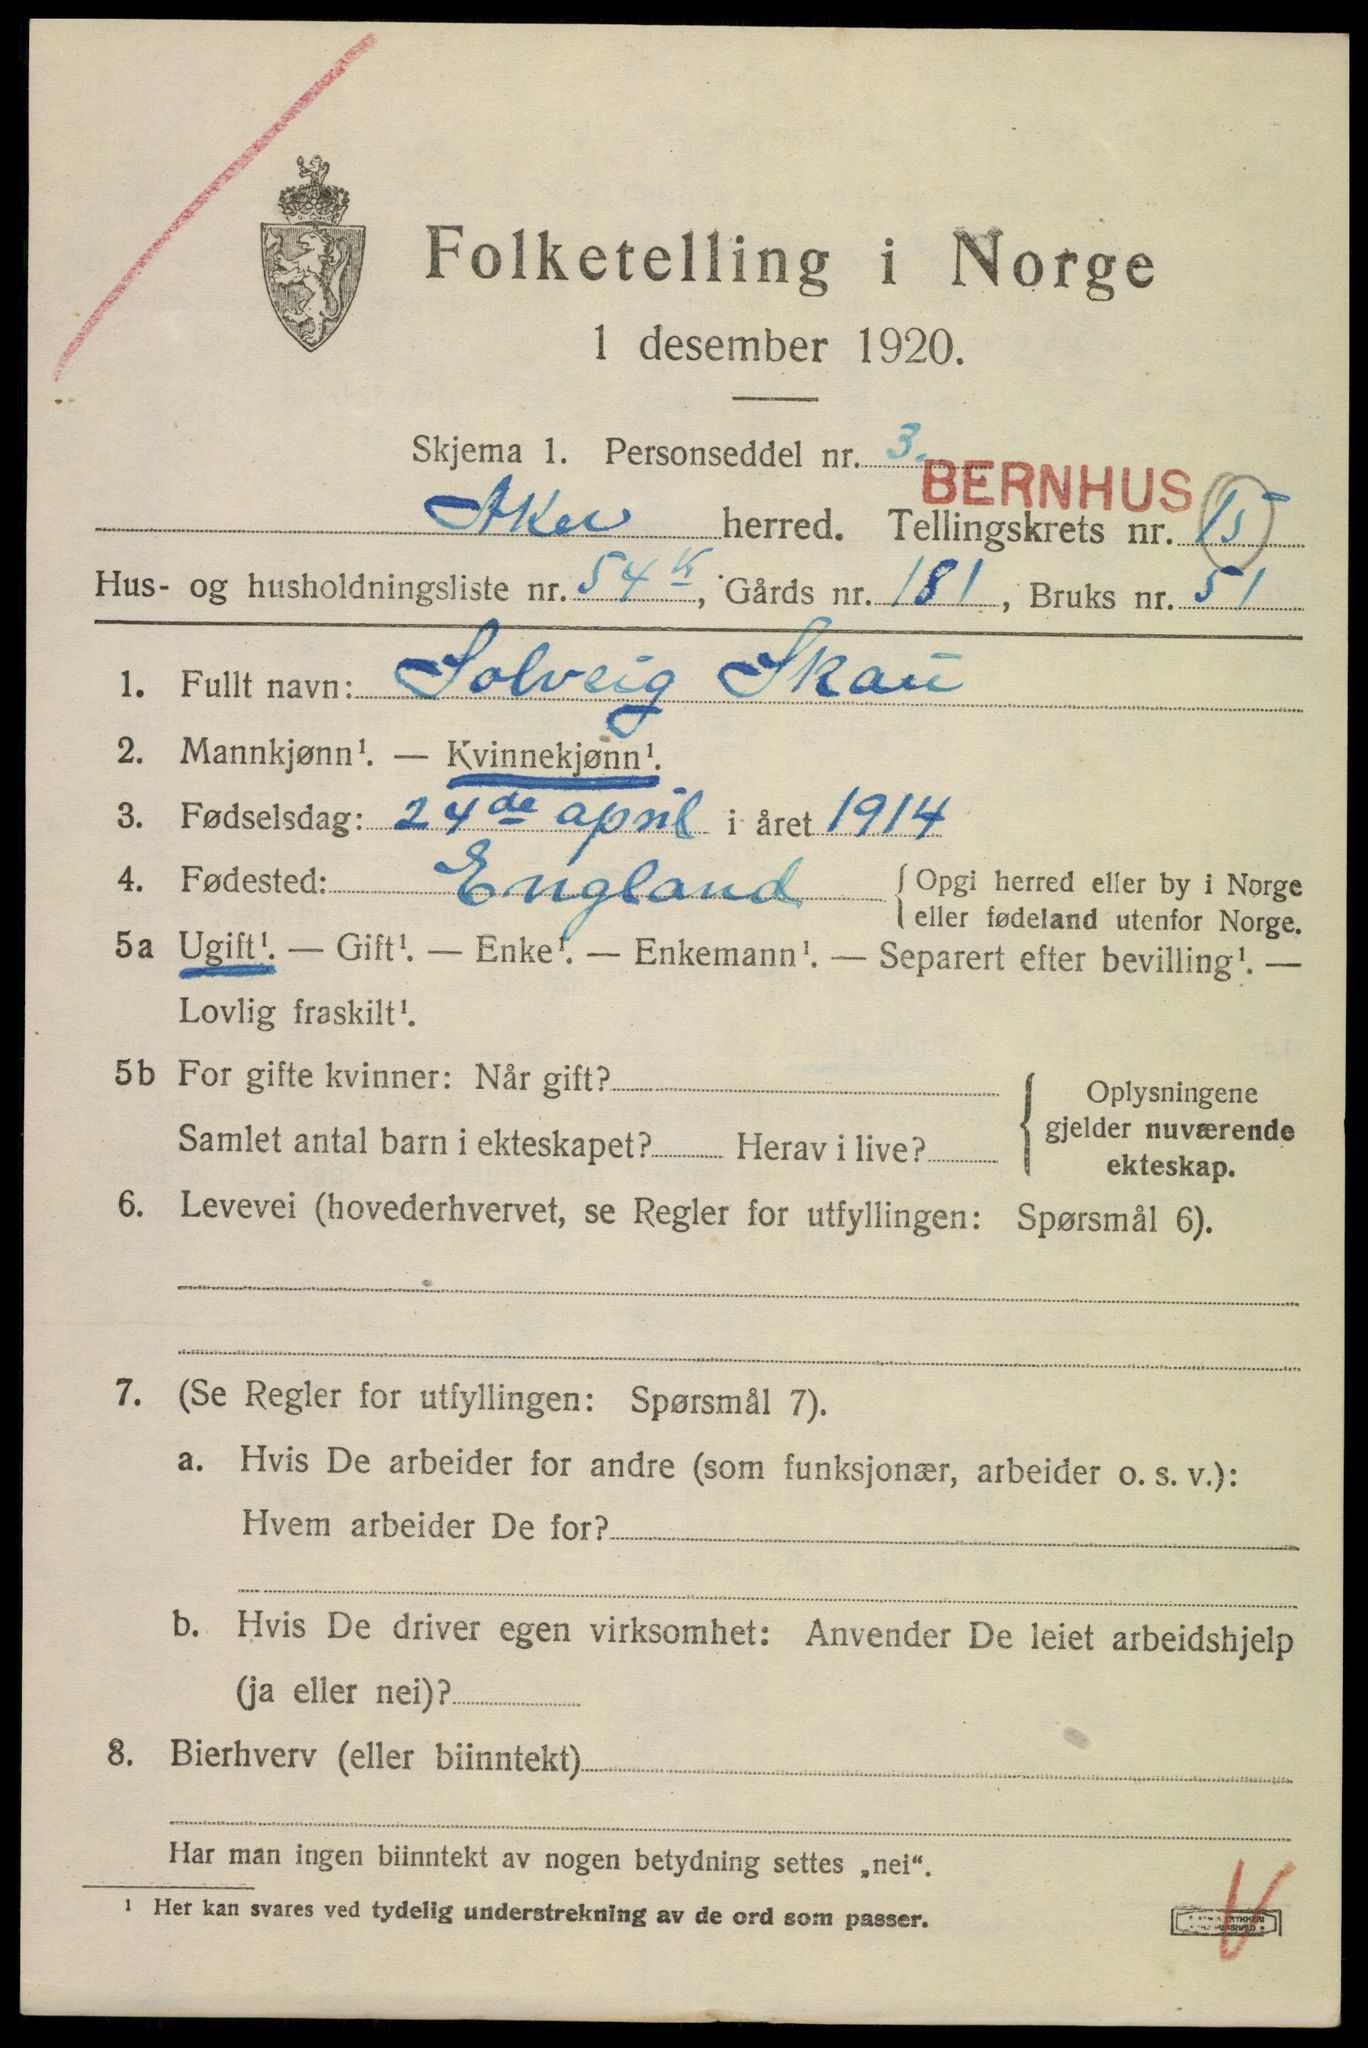 Folketelling i Norge
1 desember 1920.
Skjema 1. Personseddel nr. 3.
BERNHUS
Aker herred. Tellingskrets nr. 15
Hus- og husholdningsliste nr. 54 k, Gårds nr. 181, Bruks nr. 51
1. Fullt navn: Solveig Skau
2. Mannkjønn¹. — Kvinnekjønn¹.
3. Fødselsdag: 24de april i året 1914
4. Fødested: England { Opgi herred eller by i Norge
eller fødeland utenfor Norge.
5a Ugift¹. — Gift¹. — Enke¹. — Enkemann¹. — Separert efter bevilling¹. —
Lovlig fraskilt¹.
5b For gifte kvinner: Når gift?
Samlet antal barn i ekteskapet? Herav i live?
Oplysningene
gjelder nuværende
ekteskap.
6. Levevei (hovederhvervet, se Regler for utfyllingen: Spørsmål 6).
7. (Se Regler for utfyllingen: Spørsmål 7).
a. Hvis De arbeider for andre (som funksjonær, arbeider o. s. v.):
Hvem arbeider De for?
b. Hvis De driver egen virksomhet: Anvender De leiet arbeidshjelp
(ja eller nei)?
8. Bierhverv (eller biinntekt)
Har man ingen biinntekt av nogen betydning settes „nei“.
¹ Her kan svares ved tydelig understrekning av de ord som passer.
V